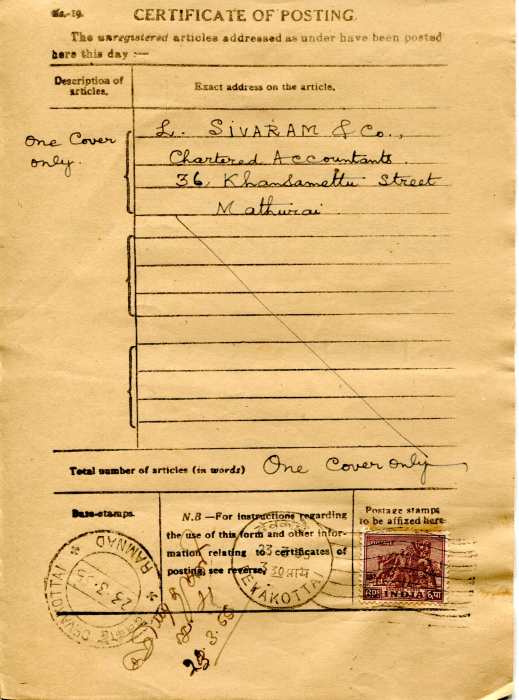 No.-19.
CERTIFICATE OF POSTING.
The unregistered articles addressed as under have been posted
here this day :—
Description of articles.
Exact address on the article.
One Cover
only.
L. SIVARAM & Co.,
Chartered Accountants.
36, Khansamettu Street
Mathurai
Total number of articles (in words) One Cover only
Date-stamps.
N.B —For instructions regarding
the use of this form and other infor-
mation relating to certificates of
posting, see reverse.
Postage stamps
to be affixed here
DEVAKOTTAI
RAMNAD
DEVAKOTTAI
INDIA